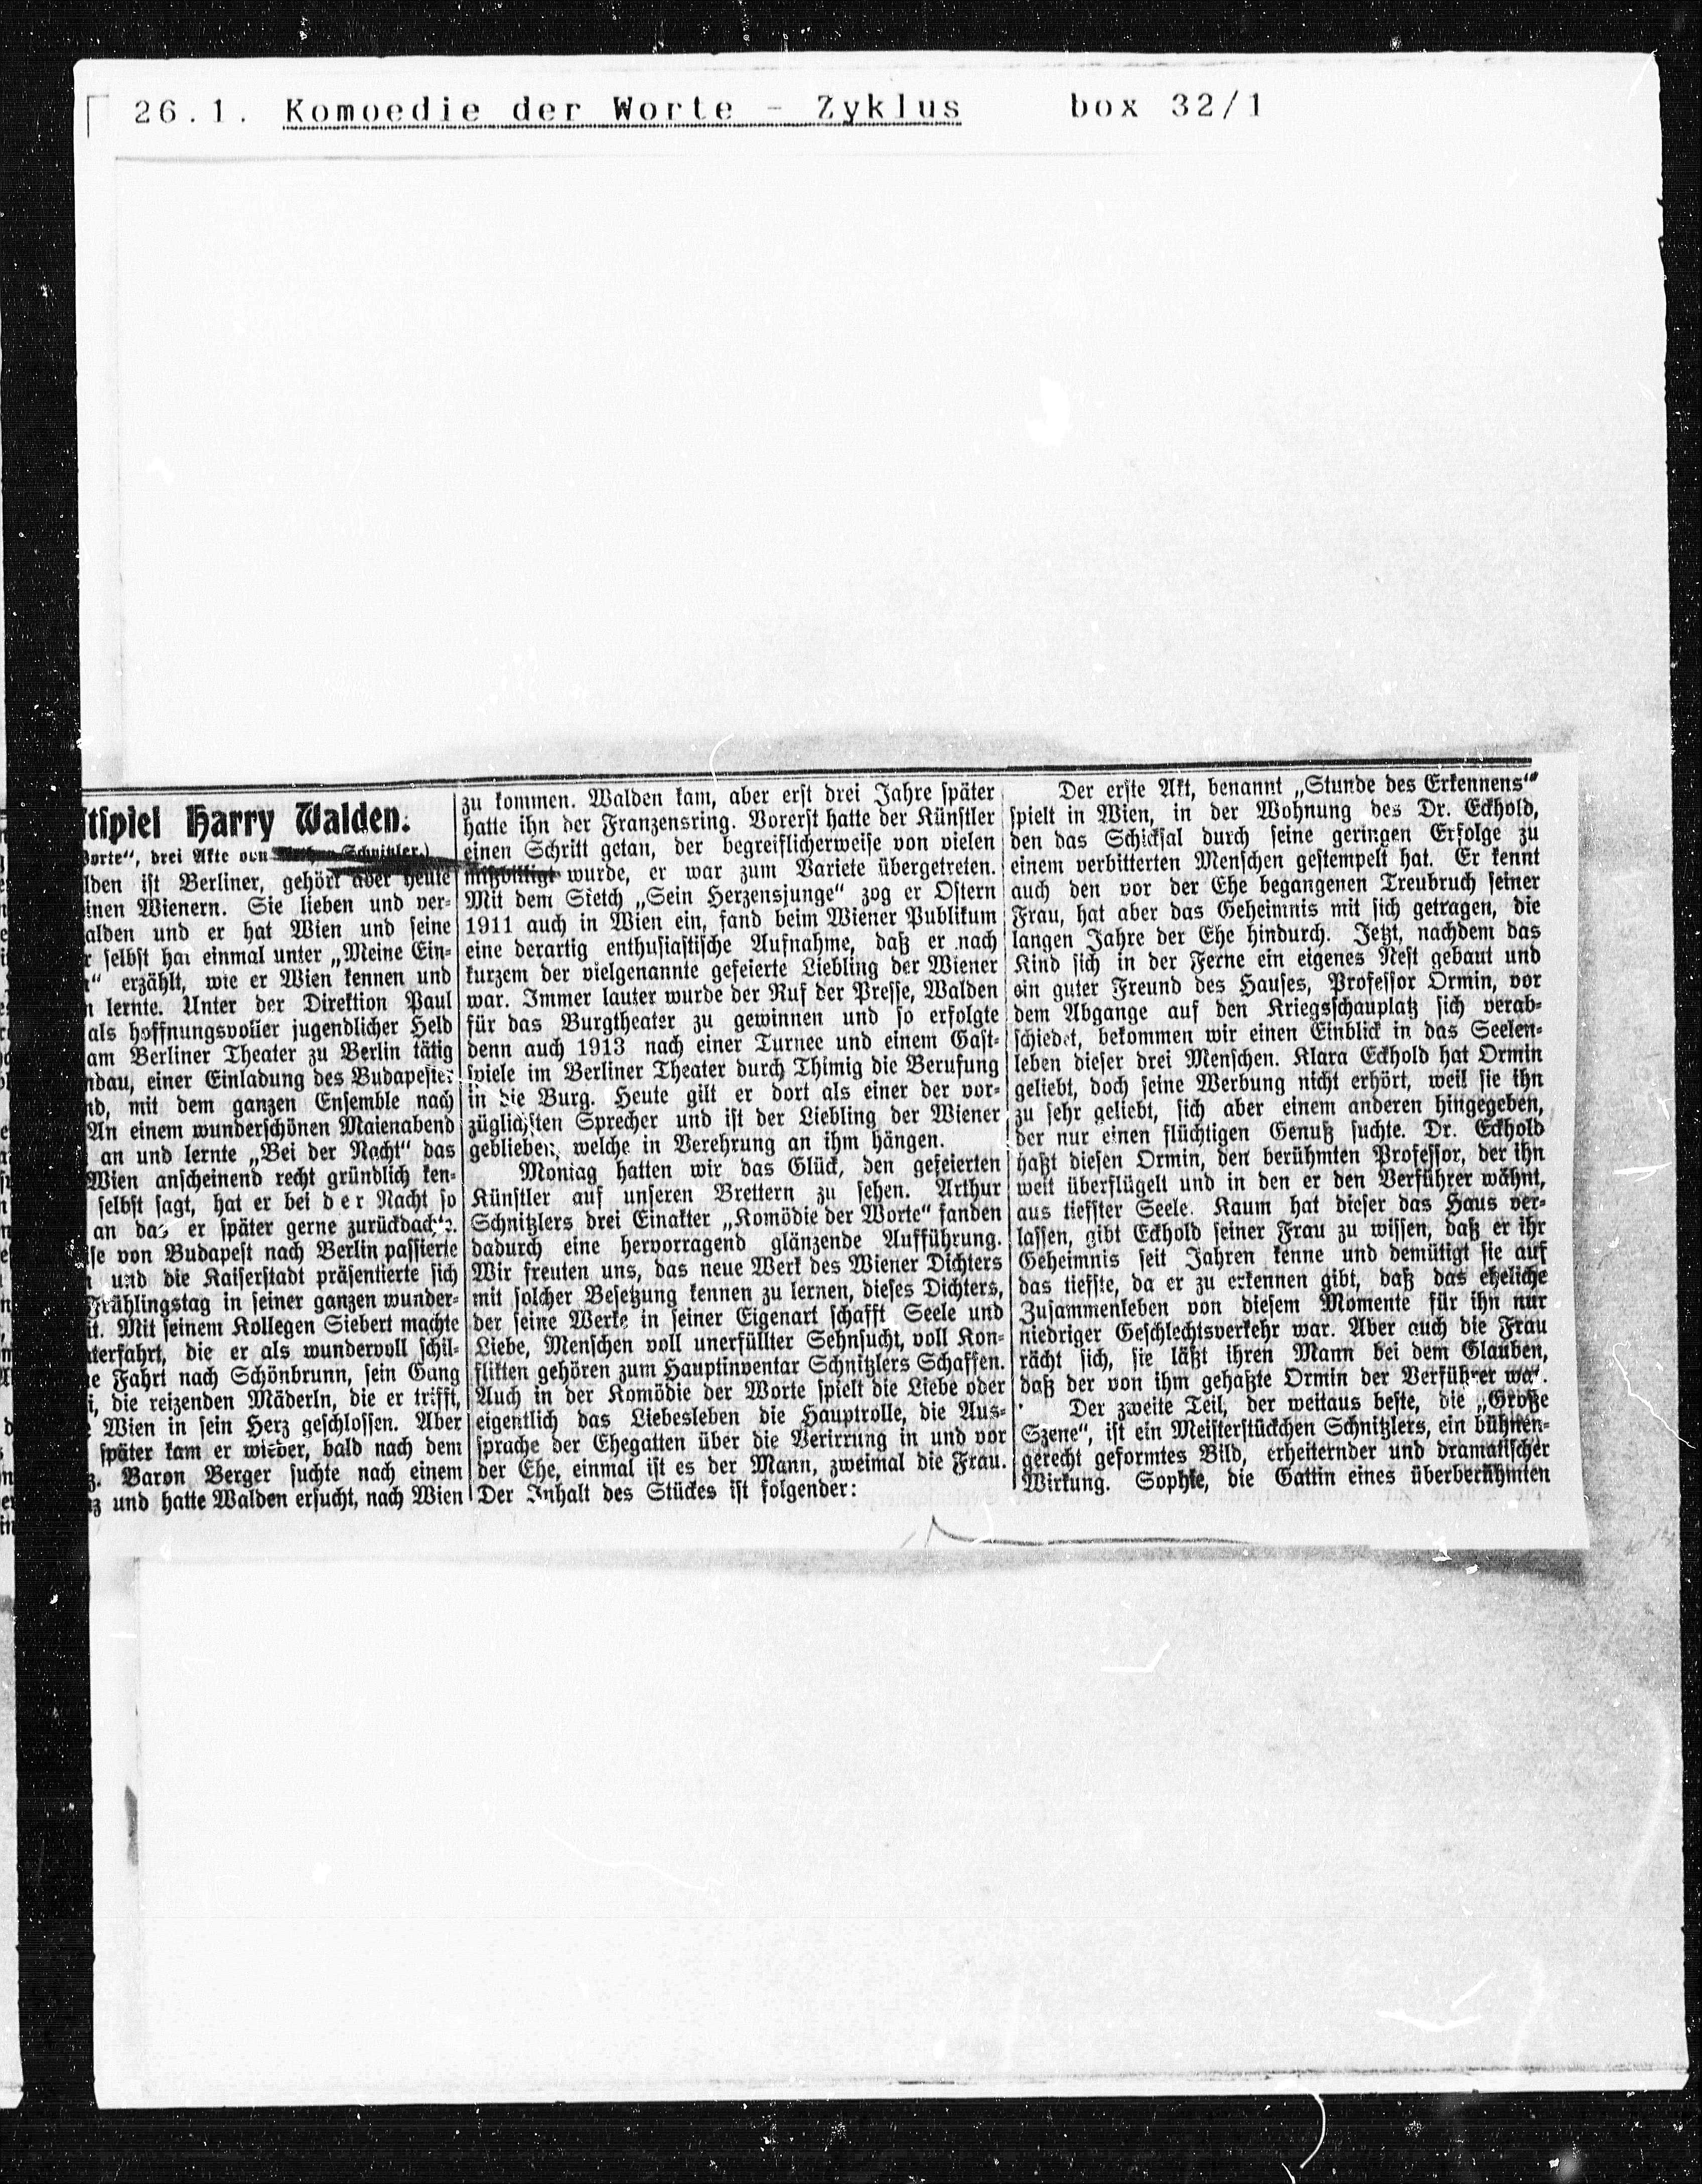 26.1. Komoedie der Worte - Zyklus box 32/1
tspiel Harry Walden.
Worte“, drei Akte von Schnitzler.)
lden ist Berliner, gehört aber heute
inen Wienern. Sie lieben und ver-
alden und er hat Wien und seine
r selbst hat einmal unter „Meine Ein-
“ erzählt, wie er Wien kennen und
n lernte. Unter der Direktion Paul
als hoffnungsvoller jugendlicher Held
am Berliner Theater zu Berlin tätig
ndau, einer Einladung des Budapester
nd, mit dem ganzen Ensemble nach
An einem wunderschönen Maienabend
an und lernte „Bei der Nacht“ das
Wien anscheinend recht gründlich ken-
selbst sagt, hat er bei der Nacht so
an das er später gerne zurückdachte.
se von Budapest nach Berlin passierte
und die Kaiserstadt präsentierte sich
Frühlingstag in seiner ganzen wunder-
it. Mit seinem Kollegen Siebert machte
terfahrt, die er als wundervoll schil-
e Fahrt nach Schönbrunn, sein Gang
i, die reizenden Mäderln, die er trifft,
Wien in sein Herz geschlossen. Aber
später kam er wieder, bald nach dem
z. Baron Berger suchte nach einem
z und hatte Walden ersucht, nach Wien
zu kommen. Walden kam, aber erst drei Jahre später
hatte ihn der Franzensring. Vorerst hatte der Künstler
einen Schritt getan, der begreiflicherweise von vielen
mißbilligt wurde, er war zum Variete übergetreten.
Mit dem Sketch „Sein Herzensjunge“ zog er Ostern
1911 auch in Wien ein, fand beim Wiener Publikum
eine derartig enthusiastische Aufnahme, daß er nach
kurzem der vielgenannte gefeierte Liebling der Wiener
war. Immer lauter wurde der Ruf der Presse, Walden
für das Burgtheater zu gewinnen und so erfolgte
denn auch 1913 nach einer Turnee und einem Gast-
spiele im Berliner Theater durch Thimig die Berufung
in die Burg. Heute gilt er dort als einer der vor-
züglichsten Sprecher und ist der Liebling der Wiener
geblieben, welche in Verehrung an ihm hängen.
Montag hatten wir das Glück, den gefeierten
Künstler auf unseren Brettern zu sehen. Arthur
Schnitzlers drei Einakter „Komödie der Worte“ fanden
dadurch eine hervorragend glänzende Aufführung.
Wir freuten uns, das neue Werk des Wiener Dichters
mit solcher Besetzung kennen zu lernen, dieses Dichters,
der seine Werke in seiner Eigenart schafft. Seele und
Liebe, Menschen voll unerfüllter Sehnsucht, voll Kon-
flikten gehören zum Hauptinventar Schnitzlers Schaffen.
Auch in der Komödie der Worte spielt die Liebe oder
eigentlich das Liebesleben die Hauptrolle, die Aus-
sprache der Ehegatten über die Verirrung in und vor
der Ehe, einmal ist es der Mann, zweimal die Frau.
Der Inhalt des Stückes ist folgender:
Der erste Akt, benannt „Stunde des Erkennens“
spielt in Wien, in der Wohnung des Dr. Eckhold,
den das Schicksal durch seine geringen Erfolge zu
einem verbitterten Menschen gestempelt hat. Er kennt
auch den vor der Ehe begangenen Treubruch seiner
Frau, hat aber das Geheimnis mit sich getragen, die
langen Jahre der Ehe hindurch. Jetzt, nachdem das
Kind sich in der Ferne ein eigenes Nest gebaut und
ein guter Freund des Hauses, Professor Ormin, vor
dem Abgange auf den Kriegsschauplatz sich verab-
schiedet, bekommen wir einen Einblick in das Seelen-
leben dieser drei Menschen. Klara Eckhold hat Ormin
geliebt, doch seine Werbung nicht erhört, weil sie ihn
zu sehr geliebt, sich aber einem anderen hingegeben,
der nur einen flüchtigen Genuß suchte. Dr. Eckhold
haßt diesen Ormin, den berühmten Professor, der ihn
weit überflügelt und in den er den Verführer wähnt,
aus tiefster Seele. Kaum hat dieser das Haus ver-
lassen, gibt Eckhold seiner Frau zu wissen, daß er ihr
Geheimnis seit Jahren kenne und demütigt sie auf
das tiefste, da er zu erkennen gibt, daß das eheliche
Zusammenleben von diesem Momente für ihn nur
niedriger Geschlechtsverkehr war. Aber auch die Frau
rächt sich, sie läßt ihren Mann bei dem Glauben,
daß der von ihm gehaßte Ormin der Verführer war.
Der zweite Teil, der weitaus beste, die „Große
Szene“, ist ein Meisterstückchen Schnitzlers, ein bühnen-
gerecht geformtes Bild, erheiternder und dramatischer
Wirkung. Sophie, die Gattin eines überberühmten